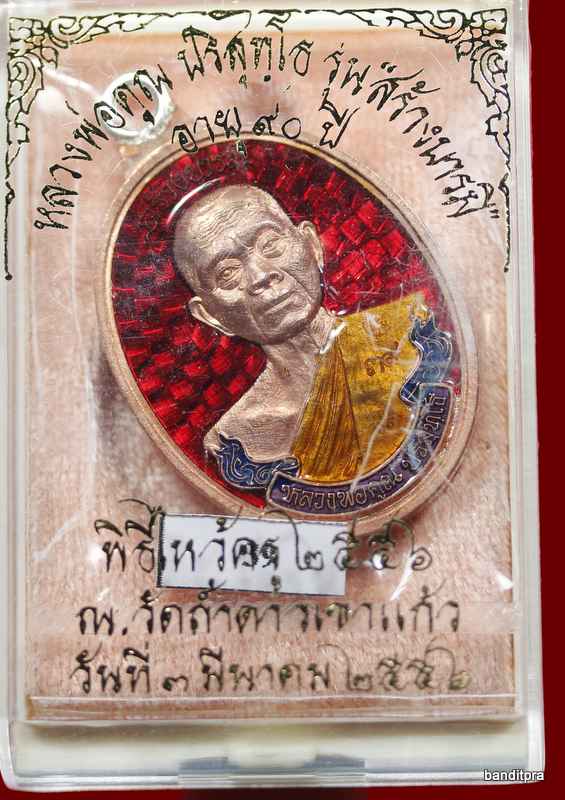 หลวงพ่อคูณ ปริสุทฺโธ รุ่น"สร้างบารมี"
อายุ ๙๐ ปี
หลวงพ่อคูณ ปริสุทโธ
พิธีไหว้ครู ๒๕๕๖
ณ.วัดถ้ำดาวเขาแก้ว
วันที่ ๓ มีนาคม ๒๕๕๖
banditpra